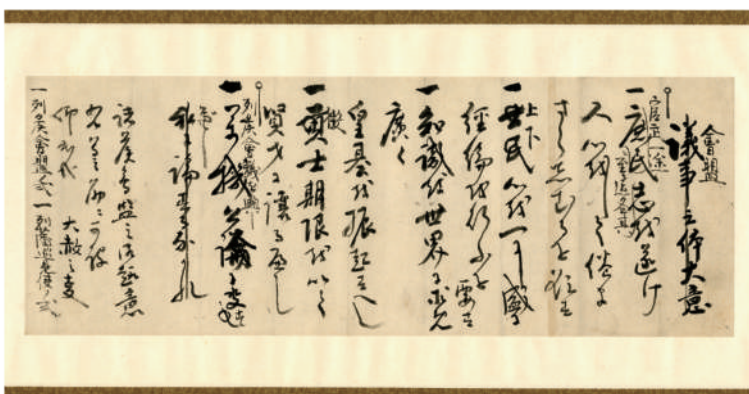 會盟
議事之体大意
官武一途
一 庶民志を遂け
至る迄各其
人心をして倦ま
さらしむるを欲す
上下
一 士民心を一にし盛に
經綸を行ふを要す
一 知識を世界に求め
廣く
皇基を振起すへし
徴
一 貢士期限を以て
賢才に讓るへし
列侯會議を興し
一 万機公論に決し
私に論するなかれ
諸侯會盟之御趣意
右等之筋ニ可被
仰出哉 大赦之事
一 列侯會盟之式 一 列藩巡見使之式